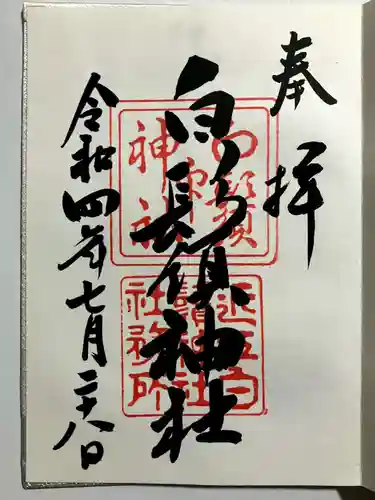 奉拝
白鬚神社
令和四年七月二十八日
近江白
鬚神社
社務所